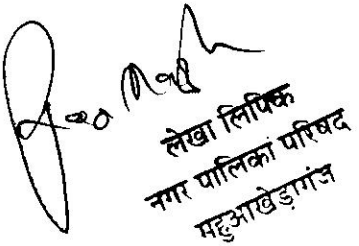 लेखा लिपिक
नगर पालिका परिषद
महुआखेड़ागंज